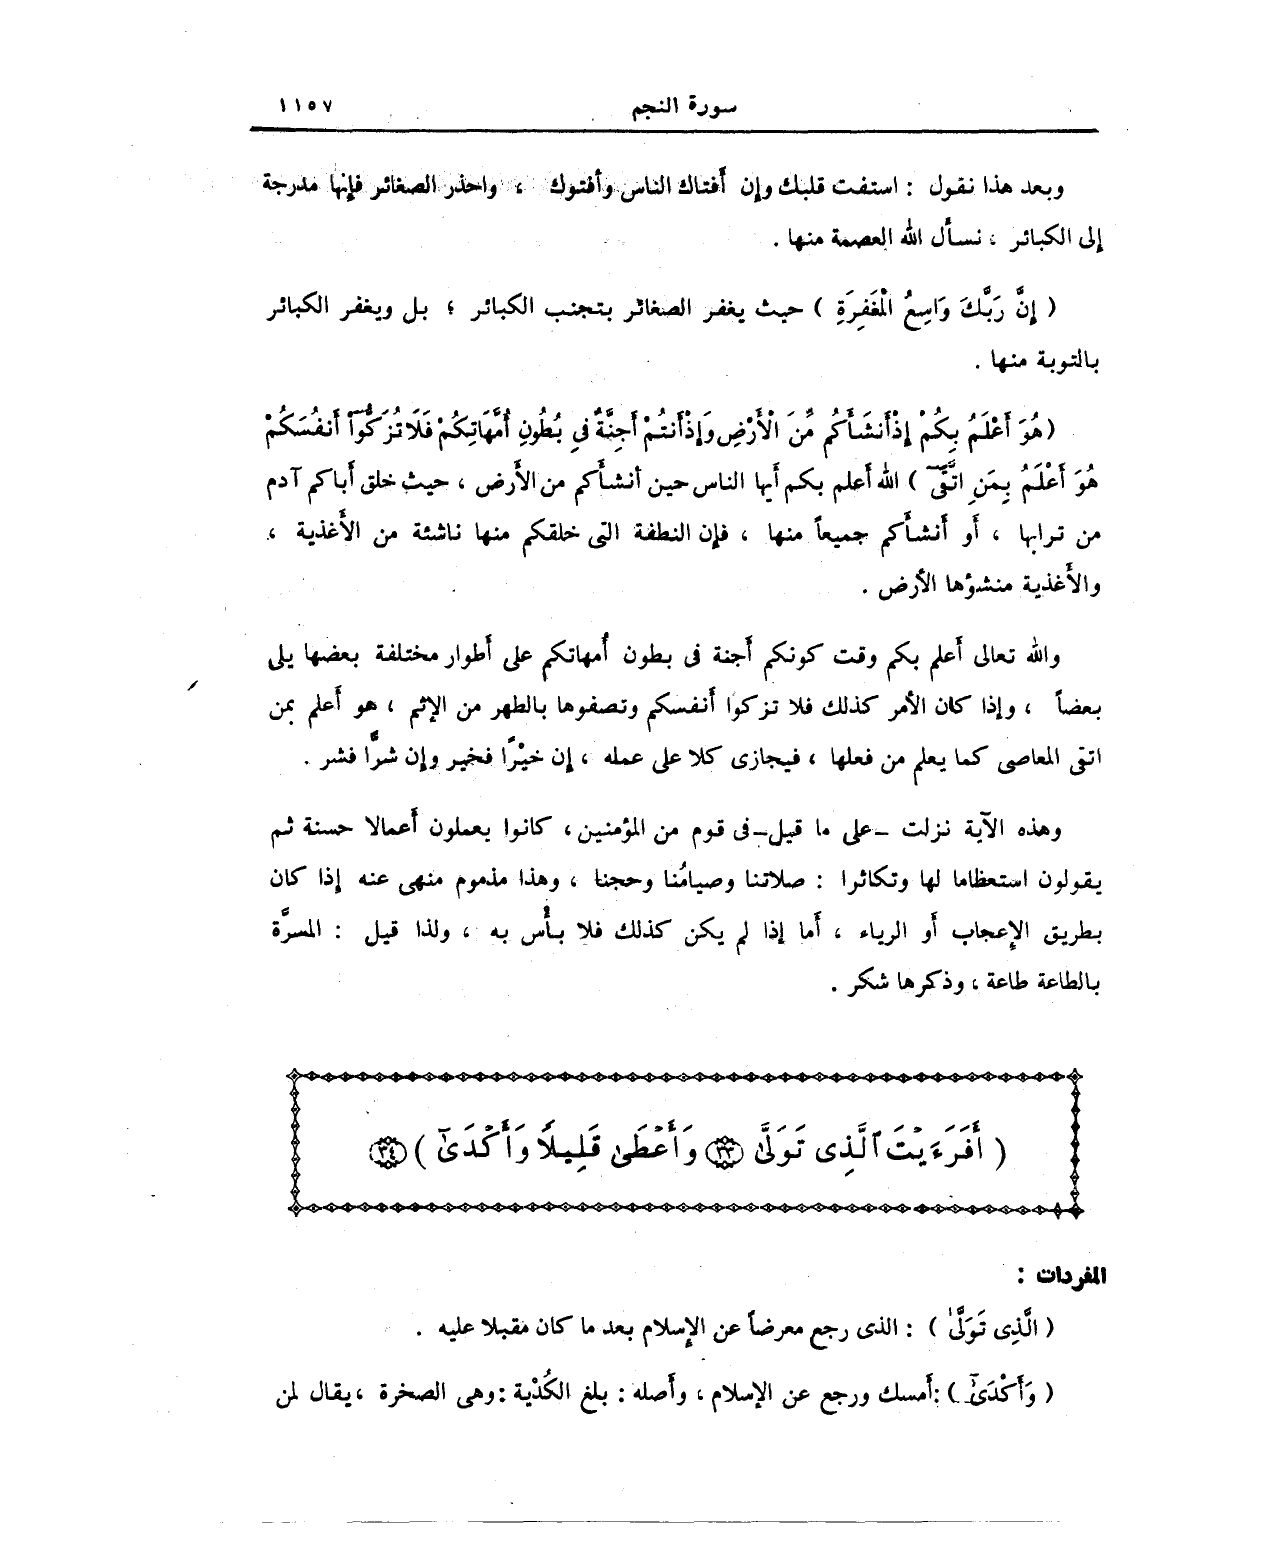 سورة النجم ١١٥٧
وبعد هذا نقول : استفت قلبك وإن أفتاك الناس وأفتوك ، واحذر الصغائر فإنها مدرجة
إلى الكبائر ، نسأل الله العصمة منها .
( إِنَّ رَبَّكَ وَاسِعُ الْمَغْفِرَةِ ) حيث يغفر الصغائر بتجنب الكبائر ؛ بل ويغفر الكبائر
بالتوبة منها .
(هُوَ أَعْلَمُ بِكُمْ إِذْ أَنشَأَكُم مِّنَ الْأَرْضِ وَإِذْ أَنتُمْ أَجِنَّةٌ فِي بُطُونِ أُمَّهَاتِكُمْ فَلَا تُزَكُّوٓا أَنفُسَكُمْ
هُوَ أَعْلَمُ بِمَنِ اتَّقَىٰٓ ) الله أعلم بكم أيها الناس حين أنشأكم من الأرض ، حيث خلق أباكم آدم
من ترابها ، أو أنشأكم جميعاً منها ، فإن النطفة التى خلقكم منها ناشئة من الأغذية ،
والأغذية منشؤها الأرض .
والله تعالى أعلم بكم وقت كونكم أجنة فى بطون أمهاتكم على أطوار مختلفة بعضها يلى
بعضاً ، وإذا كان الأمر كذلك فلا تزكوا أنفسكم وتصفوها بالطهر من الإثم ، هو أعلم بمن
اتقى المعاصى كما يعلم من فعلها ، فيجازى كلا على عمله ، إن خيْرًا فخير وإن شرًّا فشر .
وهذه الآية نزلت -على ما قيل- فى قوم من المؤمنين، كانوا يعملون أعمالا حسنة ثم
يقولون استعظاما لها وتكاثرا : صلاتنا وصيامُنا وحجنا ، وهذا مذموم منهى عنه إذا كان
بطريق الإعجاب أو الرياء ، أما إذا لم يكن كذلك فلا بأْس به ، ولذا قيل : المسرَّة
بالطاعة طاعة ، وذكرها شكر .
( أَفَرَءَيْتَ ٱلَّذِى تَوَلَّىٰ ٣٣ وَأَعْطَىٰ قَلِيلًا وَأَكْدَىٰٓ ) ٣٤
المفردات :
( الَّذِى تَوَلَّىٰ ) : الذى رجع معرضاً عن الإسلام بعد ما كان مقبلا عليه .
( وَأَكْدَىٰٓ ) : أمسك ورجع عن الإسلام ، وأصله : بلغ الكُدْية : وهى الصخرة ، يقال لمن